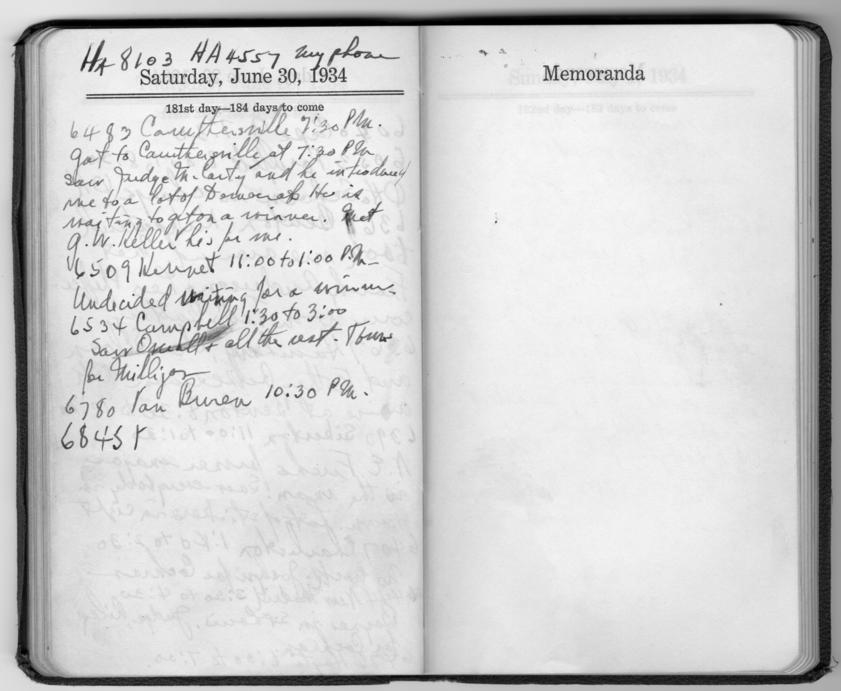 HA 8103 HA 4557 my phone
Saturday, June 30, 1934
181st day—184 days to come
6483 Caruthersville 7:30 P.M.
got to Caruthersville at 7:30 P.M.
Saw Judge McCarty and he introduced
me to a lot of Democrats He is
waiting to get on a winner. Met
G.W. Keller his for me.
6509 Kennet 11:00 to 1:00 P.M.
Undecided waiting for a winner.
6534 Campbell 1:30 to 3:00
Saw + all the rest. Town
for Milligan
6780 Van Buren 10:30 P.M.
6845
Memoranda